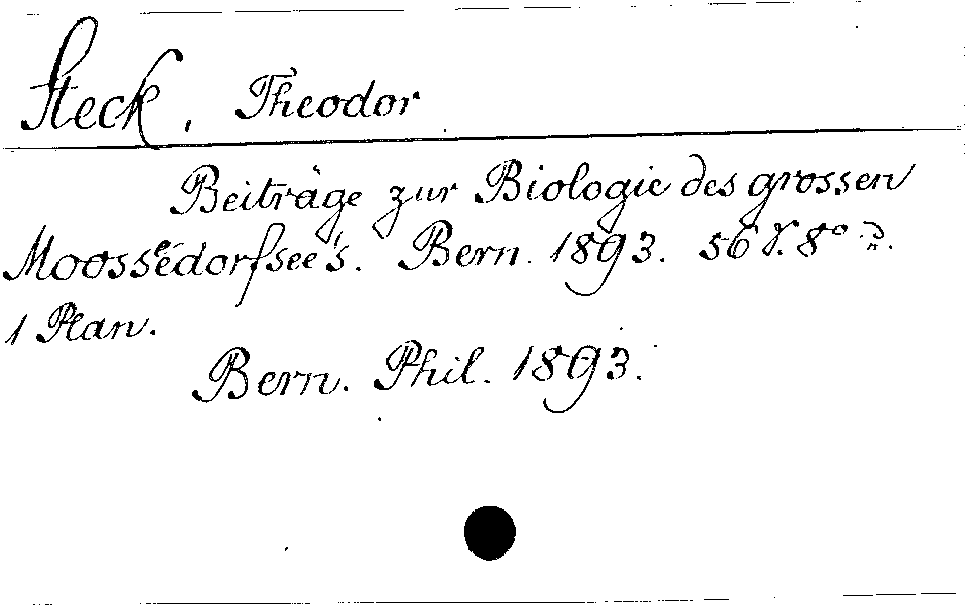 Steck, Theodor
Beiträge zur Biologie des grossen
Moosseedorfsee's. Bern. 1893. 56 S. 8°
1 Plan.
Bern. Phil. 1893.